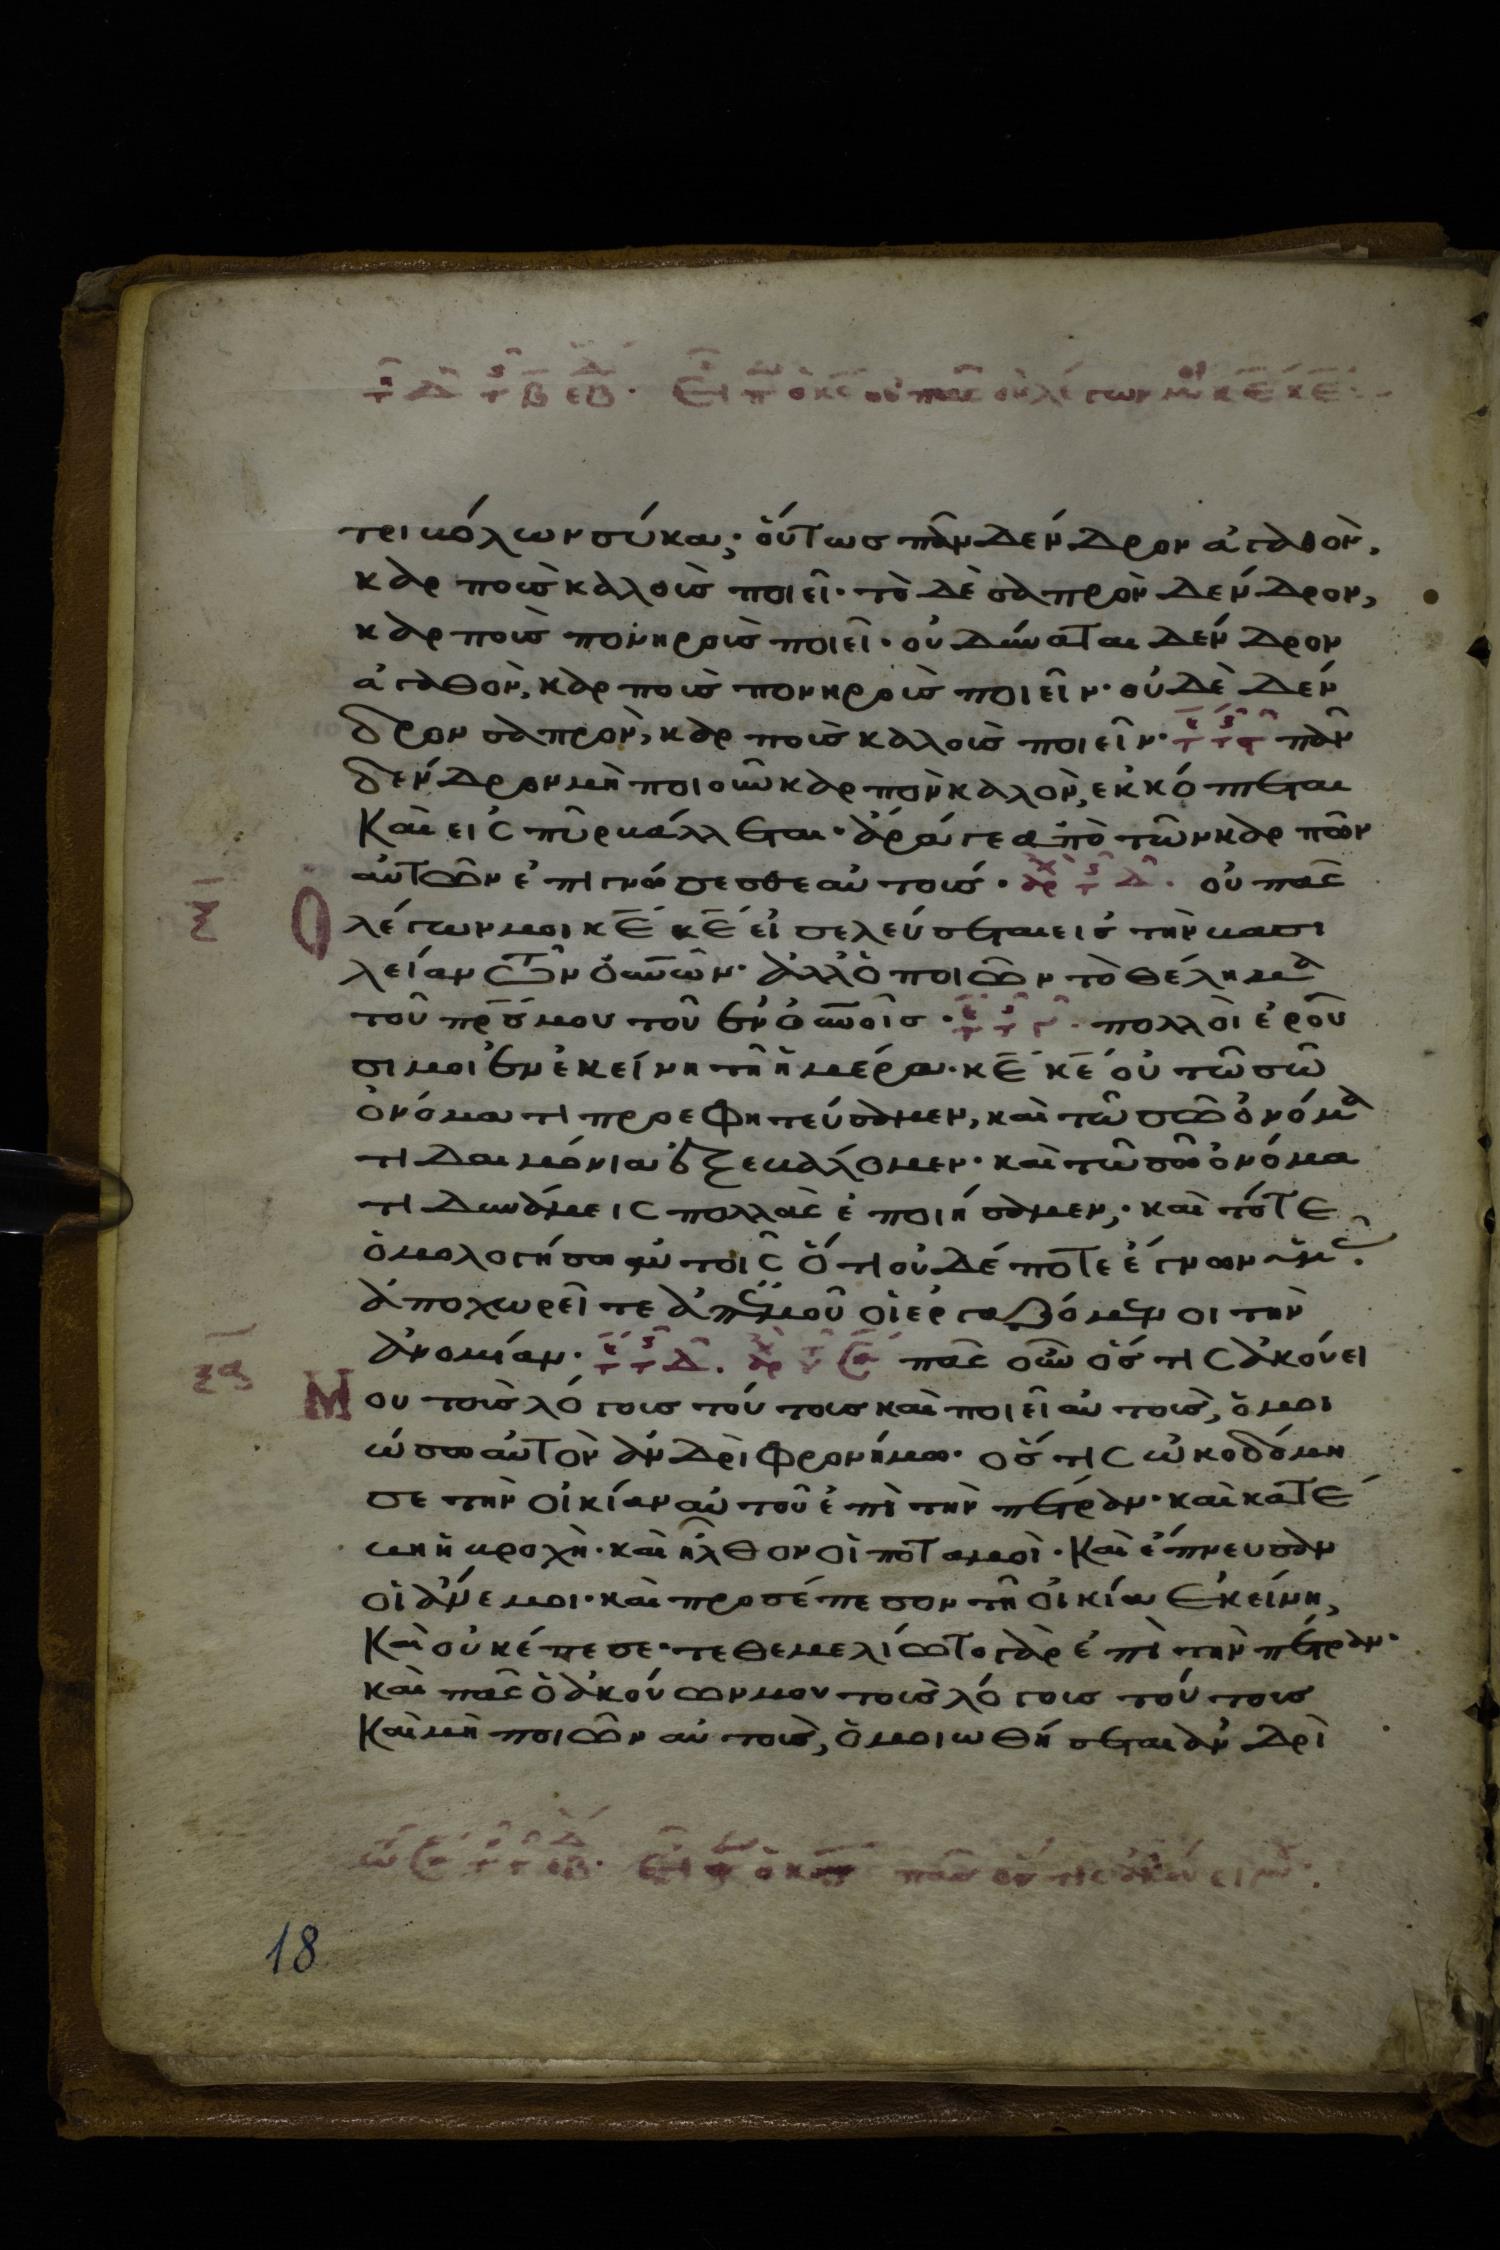 τριβόλων σύκα; οὕτως πᾶν δένδρον ἀγαθὸν,
καρποὺς καλοὺς ποιεῖ· τὸ δὲ σαπρὸν δένδρον,
καρποὺς πονηροὺς ποιεῖ· οὐ δύναται δένδρον
ἀγαθὸν, καρποὺς πονηροὺς ποιεῖν· οὐδὲ δέν
δρον σαπρὸν, καρποὺς καλοὺς ποιεῖν· πᾶν
δένδρον μὴ ποιοῦν καρπὸν καλὸν, ἐκκόπτεται
Καὶ εἰς πῦρ βάλλεται· ἄράγε ἀπὸ τῶν καρπῶν
αὐτῶν ἐπιγνώσεσθε αὐτούς· οὐ πᾶς
Ο λέγων μοι κ̅ε̅ κ̅ε̅ εἰσελεύσεται εἰς τὴν βασι
λείαν τῶν οὐνῶν· ἀλλ' ὁ ποιῶν τὸ θέλημα
τοῦ πρ̅ς̅ μου τοῦ ἐν οὐνοῖς· πολλοὶ ἐροῦ
σι μοι ἐν ἐκείνη τῆ ἡμέρα· κ̅ε̅ κ̅ε̅ οὐ τῶ σῶ
ὀνόματι προεφητεύσαμεν, καὶ τῶ σῶ ὀνόμα
τι δαιμόνια ἐξεβάλομεν· καὶ τῶ σῶ ὀνόμα
τι δυνάμεις πολλὰς ἐποιήσαμεν; καὶ τότε
ὁμολογήσω αὐτοῖς ὅτι οὐδέποτε ἔγνων ὑμᾶς·
ἀποχωρεῖτε ἀπ' ἐμοῦ οἱ ἐργαζόμενοι τὴν
ἀνομίαν· πᾶς οὖν ὅστις ἀκούει
Μ ου τοὺς λόγους τούτους καὶ ποιεῖ αὐτοὺς, ὁμοι
ώσω αὐτὸν ἀνδρὶ φρονίμω· ὅστις ὠκοδόμη
σε τὴν οἰκίαν αὐτοῦ ἐπὶ τὴν πέτραν· καὶ κατέ
βη ἡ βροχὴ· καὶ ἦλθον οἱ ποταμοὶ· Καὶ ἔπνευσαν
οἱ ἄνεμοι· καὶ προσέπεσον τῆ οἰκία ἐκείνη,
Καὶ οὐκ ἔπεσε· τεθεμελίωτο γὰρ ἐπὶ τὴν πέτραν·
καὶ πᾶς ὁ ἀκούων μου τοὺς λόγους τούτους
Καὶ μὴ ποιῶν αὐτοὺς, ὁμοιωθήσεται ἀνδρὶ
18